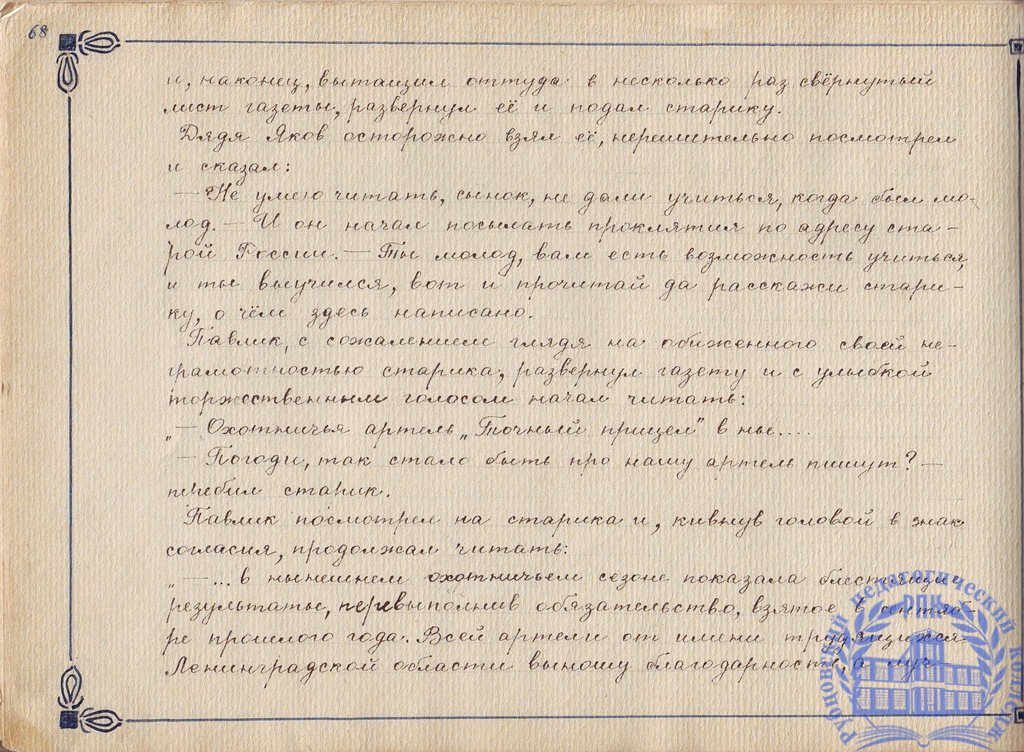 68
и, наконец, вытащил оттуда в несколько раз свёрнутый
лист газеты, развернул её и подал старику.
Дядя Яков осторожно взял её, нерешительно посмотрел
и сказал:
— Не умею читать, сынок, не дали учиться, когда был мо-
лод. — И он начал посылать проклятия по адресу ста-
рой России. — Ты молод, вам есть возможность учиться,
и ты выучился, вот и прочитай да расскажи стари-
ку, о чём здесь написано.
Павлик, с сожалением глядя на обиженного своей не-
грамотностью старика, развернул газету и с улыбкой
торжественным голосом начал читать:
„— Охотничья артель „Точный прицел" в ны....
— Погоди, так стало быть про нашу артель пишут? —
перебил старик.
Павлик посмотрел на старика и, кивнув головой в знак
согласия, продолжал читать:
„—... в нынешнем охотничьем сезоне показала блестящие
результаты, перевыполнив обязательство, взятое в сентяб-
ре прошлого года. Всей артели от имени трудящихся
Ленинградской области выношу благодарность, а луч-
Рубцовский педагогический колледж
РПК